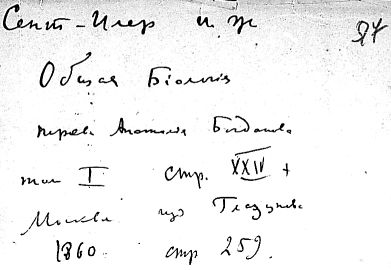 Сент-Илер и ж 94
Общая Біологія
перев Анатолія Богданова
том I стр. XXIV +
Москва изд Глазунова
1860 стр 259.